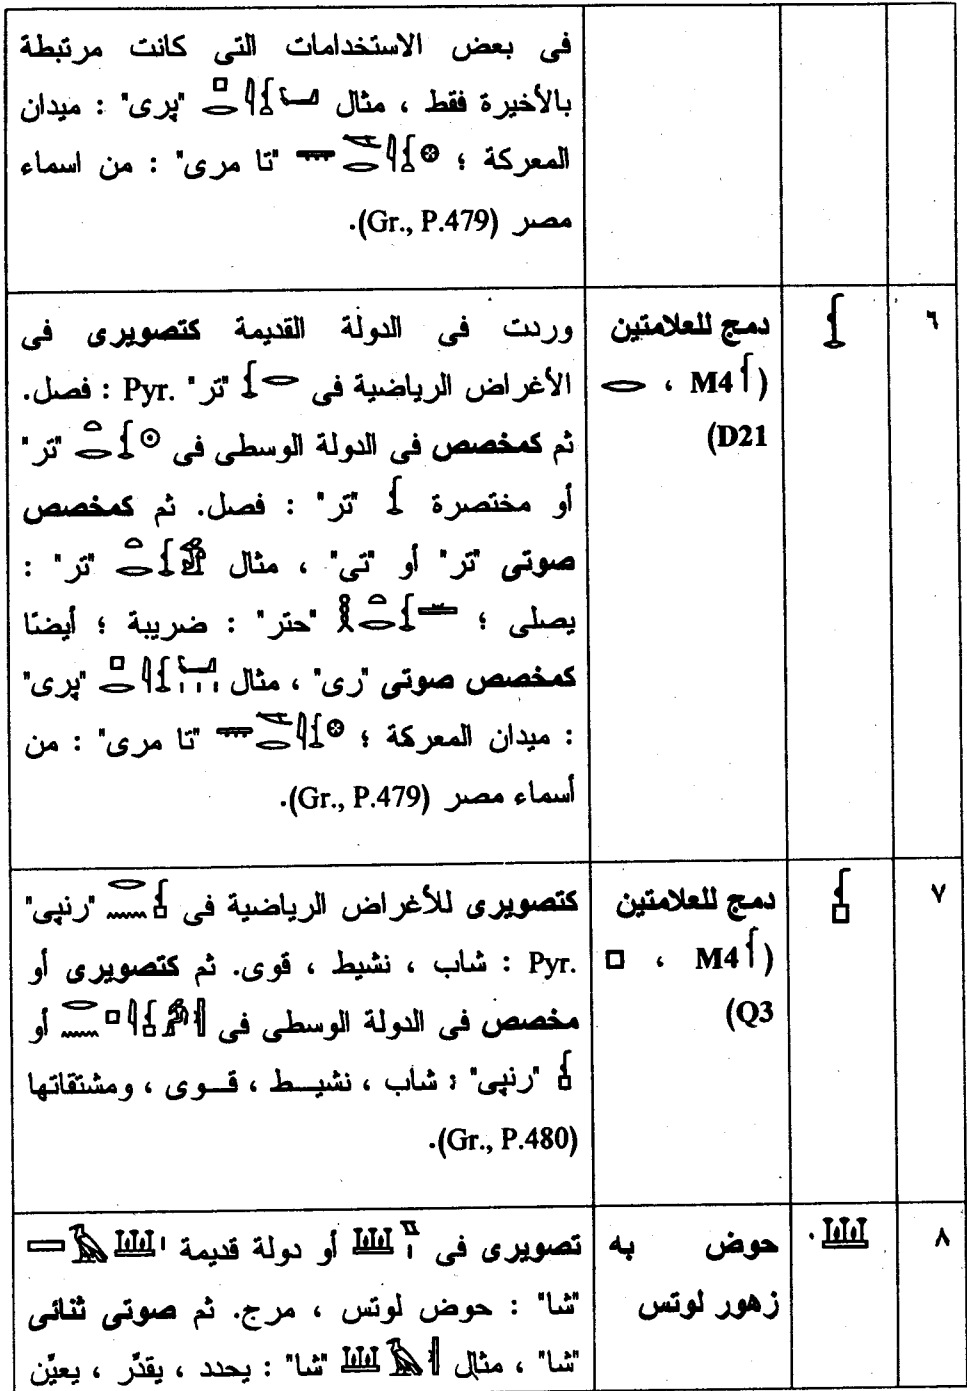 فى بعض الاستخدامات التى كانت مرتبطة
بالأخيرة فقط ، مثال "پرى" : ميدان
المعركة ؛ "تا مرى" : من اسماء
مصر (Gr., P.479).
٦
دمج للعلامتين
(M4 ،
D21)
وردت فى الدولة القديمة كتصويرى فى
الأغراض الرياضية فى "تر" Pyr. : فصل.
ثم كمخصص فى الدولة الوسطى فى "تر"
أو مختصرة "تر" : فصل. ثم كمخصص
صوتى "تر" أو "تى" ، مثال "تر" :
يصلى ؛ "حتر" : ضريبة ؛ أيضنا
كمخصص صوتى "رى" ، مثال "پرى"
: ميدان المعركة ؛ "تا مرى" : من
أسماء مصر (Gr., P.479).
٧
دمج للعلامتين
(M4 ،
Q3)
كتصويرى للأغراض الرياضية فى "رنپى"
Pyr. : شاب ، نشيط ، قوى. ثم كتصويرى أو
مخصص فى الدولة الوسطى فى أو
"رنپى" : شاب ، نشيــط ، قــوى ، ومشتقاتها
(Gr., P.480).
٨
حوض به
زهور لوتس
تصويرى فى أو دولة قديمة
"شا" : حوض لوتس ، مرج. ثم صوتى ثنائى
"شا" ، مثال "شا" : يحدد ، يقدَّر ، يعيَّن